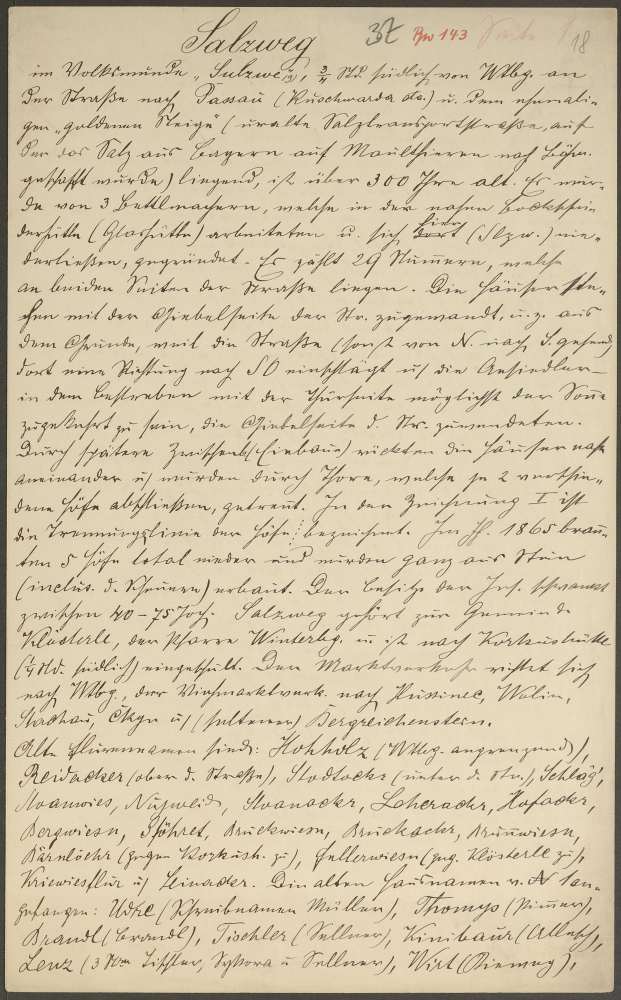 Salzweg 37 Bw 143 Seite 1 18
im Volksmunde „Sulzwe, 3/4 Std. südlich von Wtbg. an
der Straße nach Passau (Kuschwarda etc.) u. dem ehemali-
gen „goldenen Steige" (uralte Salztransportstraße, auf
der das Salz aus Bayern auf Maulthieren nach Böhm.
geschafft wurde) liegend, ist über 300 Jhre alt. Es wur-
de von 3 Bettlmachern, welche in der nahen
hütte (Glashütte) arbeiteten u. sich hier dort (Slzw.) nie-
derließen, gegründet. Es zählt 29 Nummern, welche
an beiden Seiten der Straße liegen. Die Häuser ste-
hen mit der Giebelseite der Str. zugewandt, u. z. aus
dem Grunde, weil die Straße (sonst von N. nach S. gehend)
dort eine Richtung nach SO einschlägt u. die Ansiedler
in dem Bestreben mit der Thürseite möglichst der Sonne
zugekehrt zu sein, die Giebelseite d. Str. zuwendeten.
Durch spätere Zwischenb(Einbaue) rückten die Häuser nahe
aneinander u. wurden durch Thore, welche je 2 verschie-
dene Höfe abschließen, getrennt. In der Zeichnung I ist
die Trennungslinie der Höfe bezeichnet. Im J. 1865 brann-
ten 5 Höfe total nieder und wurden ganz aus Stein
(inclus. d. Scheuern) erbaut. Der Besitz der Ins. schwankt
zwischen 40 – 75 Joch. Salzweg gehört zur Gemeinde
Klösterle, der Pfarre Winterbg. u. ist nach Korkushütte
(1/4 Std. südlich) eingeschult. Der Marktverkehr richtet sich
nach Wtbg., der Viehmarktverk. nach Hussinec, Wolin,
Stachau, Ckyn u. (seltener) Bergreichenstein.
Alte Flurennamen sind: Hohholz (Wtbg. angrenzend),
Reidacker (ober d. Straße), Stodlockr (unter d. Str.), Schläg',
Stoanwies, Nußweid, Stoanackr, Loherackr, Hofackr,
Bergwiesn, Pföhret, Bruckwiesn, Bruckackr, Brunnwiesn,
Bärnlöchr (gegen Korkush. zu), Hellerwiesn (geg. Klösterle zu),
Kriewiesflur u. Leinacker. Die alten Hausnamen v. N an-
gefangen: Udtl (Schreibnamen Müller), Thomys (Pimmer),
Brandl (Brandl), Tischler (Sellner), Kinibaur,
Lenz (3 Tischler, Sykora u. Sellner), Wirt,